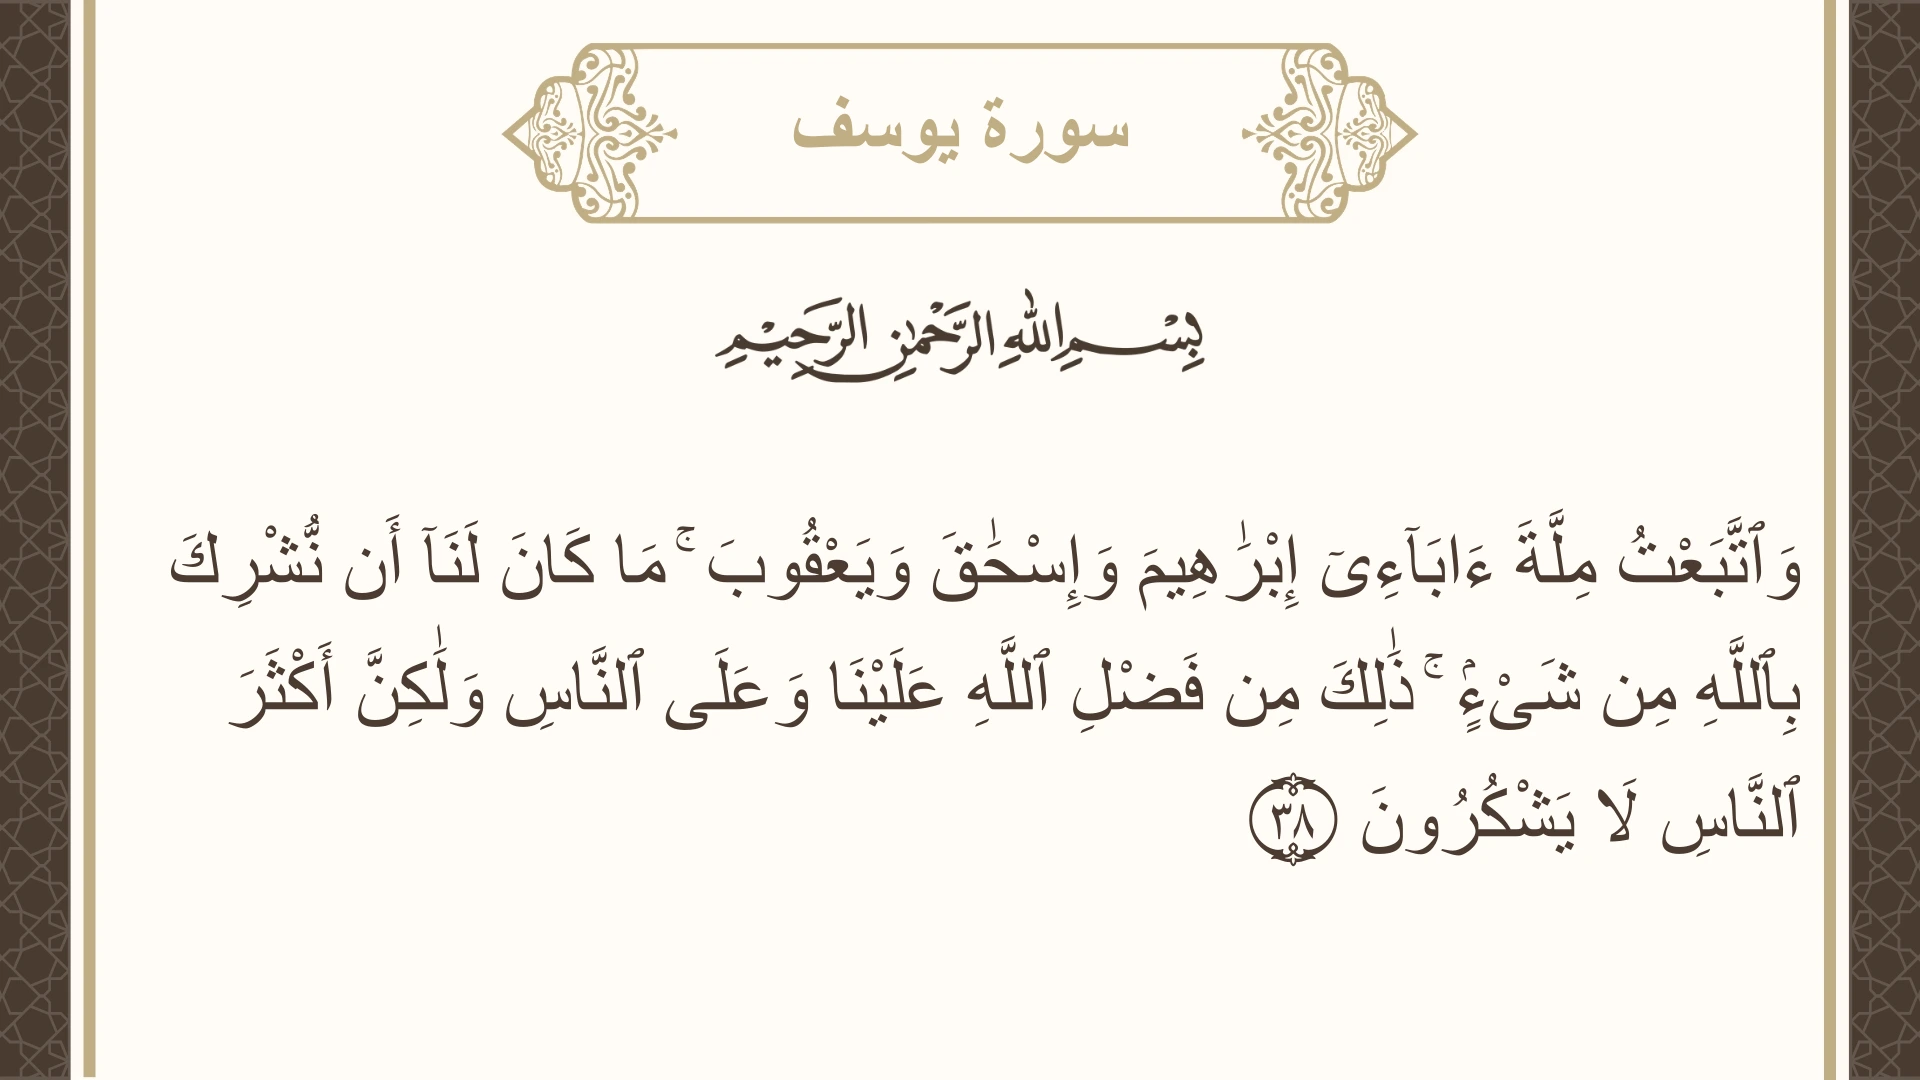 سورة يوسف
بِسْمِ اللهِ الرَّحْمٰنِ الرَّحِيْمِ
وَٱتَّبَعْتُ مِلَّةَ ءَابَآءِىٓ إِبْرَٰهِيمَ وَإِسْحَٰقَ وَيَعْقُوبَ ۚ مَا كَانَ لَنَآ أَن نُّشْرِكَ
بِٱللَّهِ مِن شَىْءٍۢ ۚ ذَٰلِكَ مِن فَضْلِ ٱللَّهِ عَلَيْنَا وَعَلَى ٱلنَّاسِ وَلَٰكِنَّ أَكْثَرَ
ٱلنَّاسِ لَا يَشْكُرُونَ ٣٨